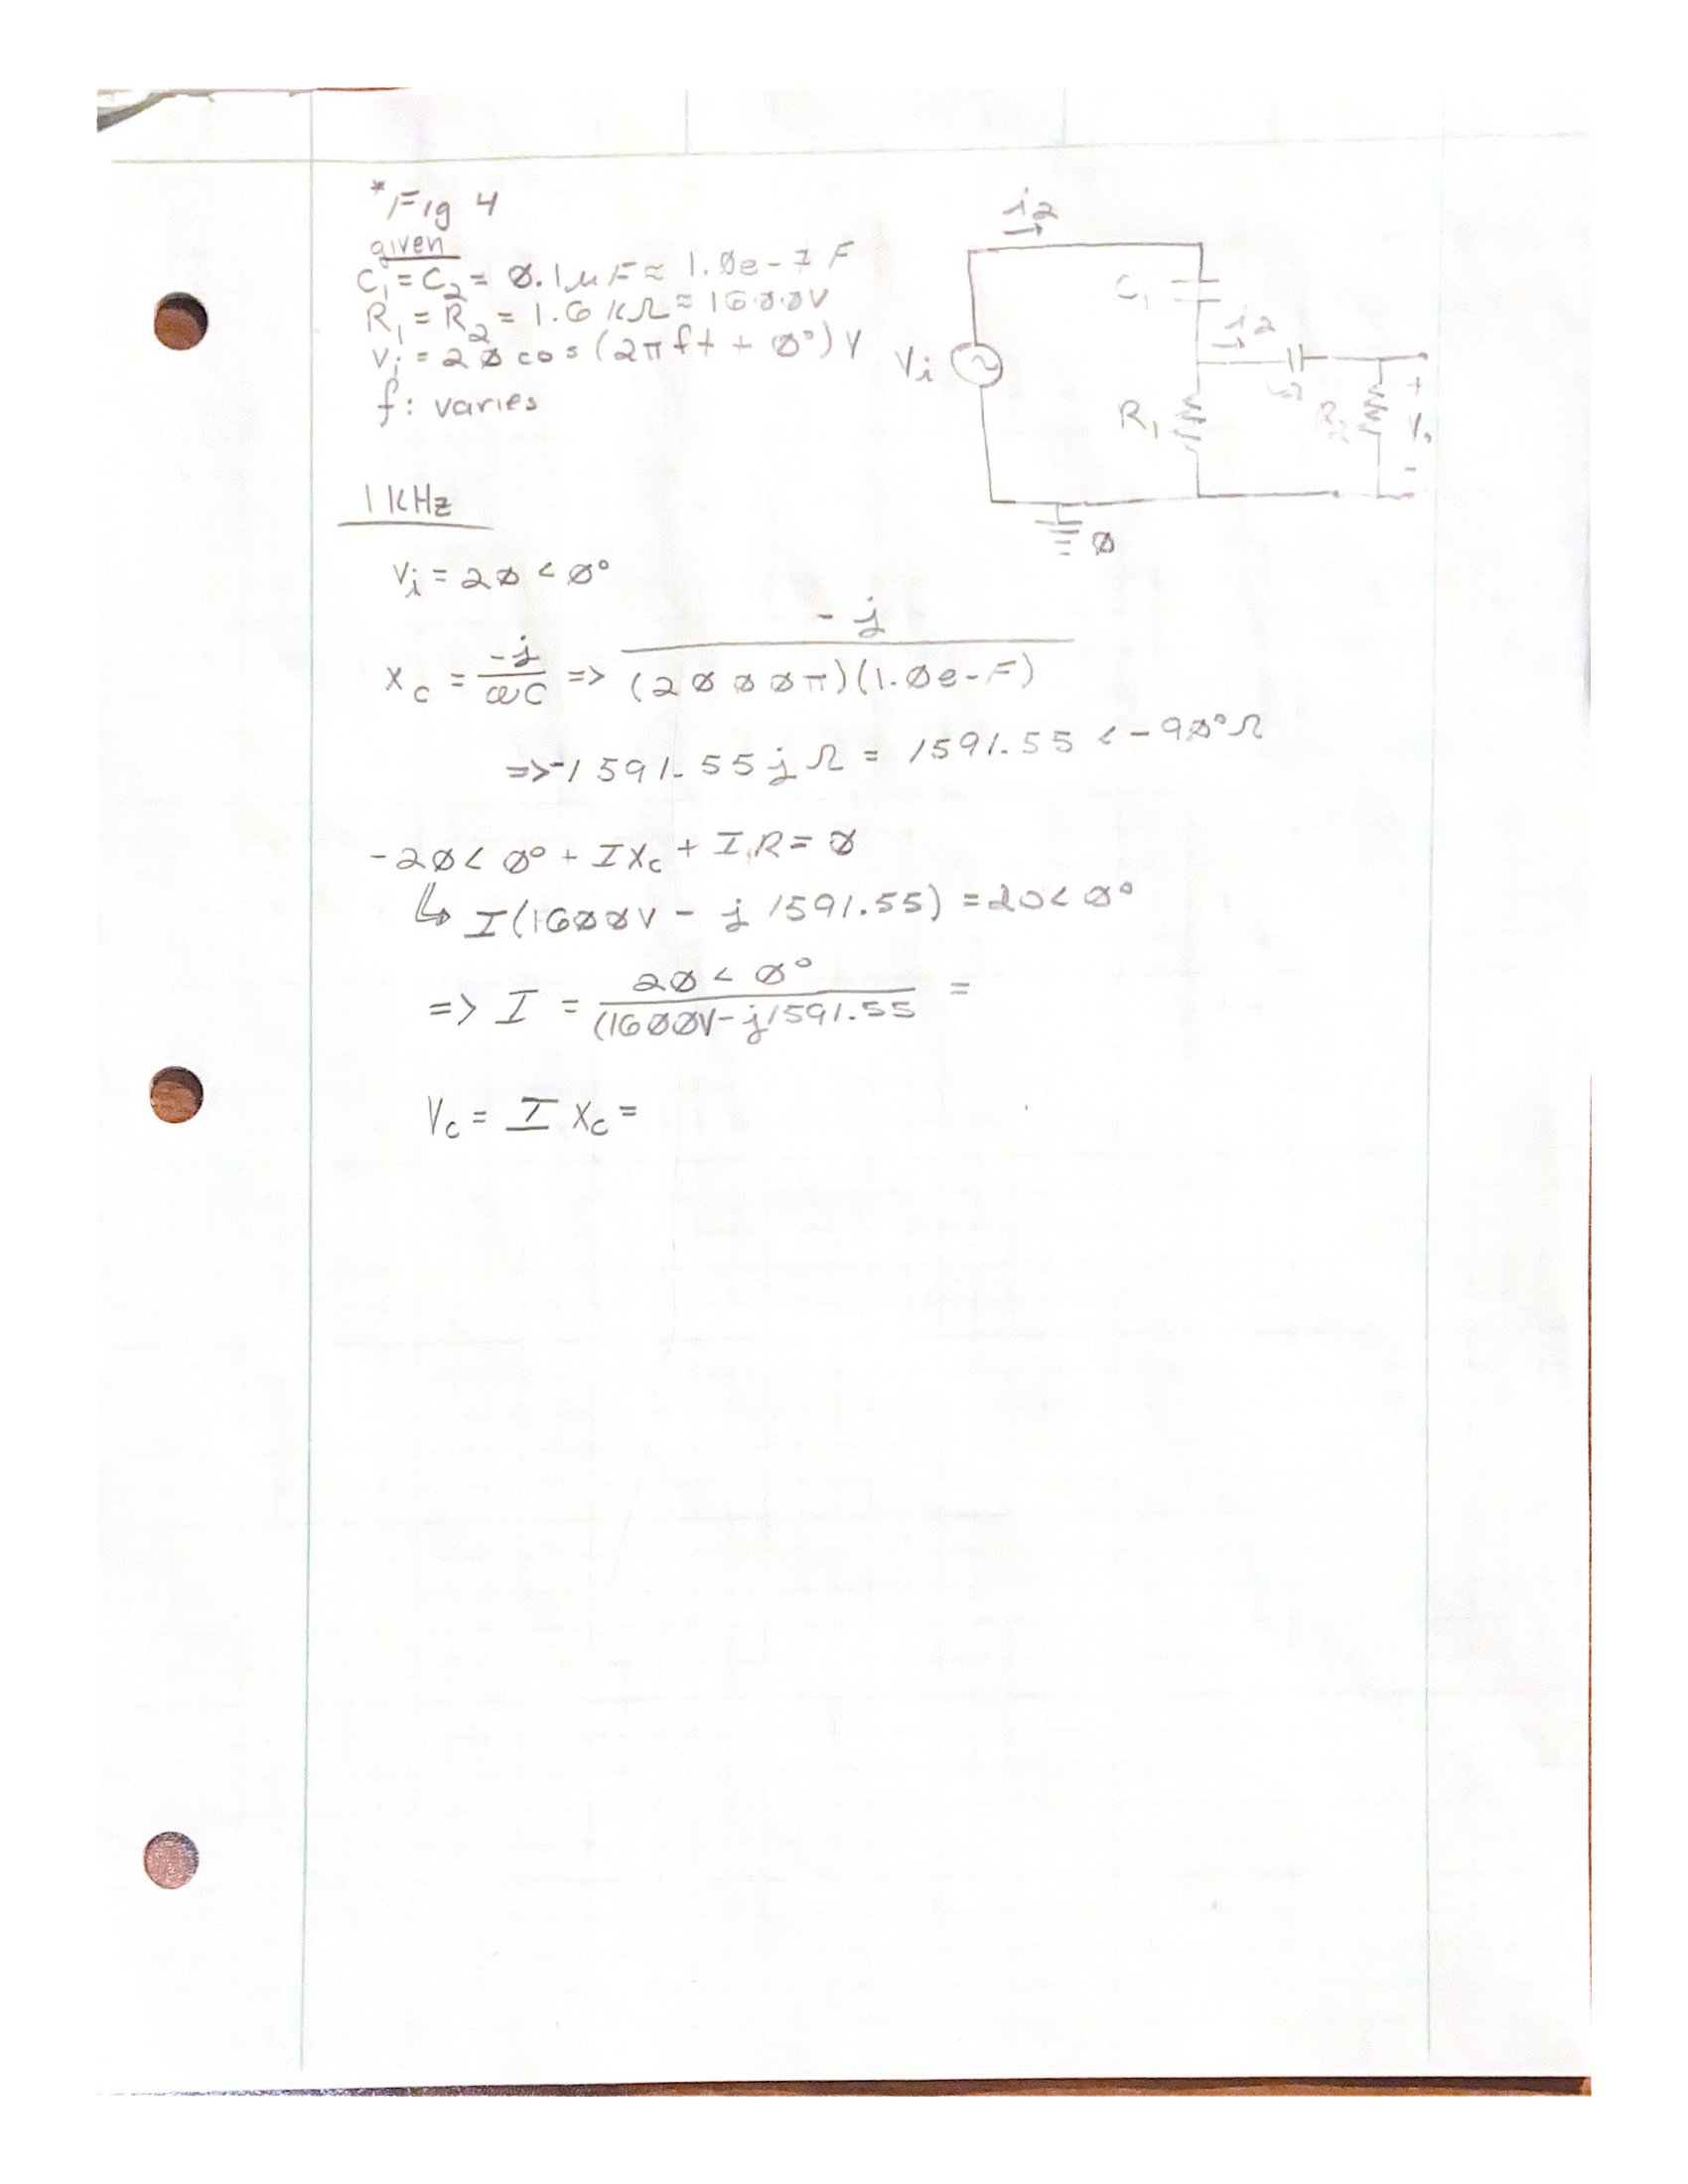 *Fig 4
given
C₁ = C₂ = Ø.1μF ≈ 1.Øe-7 F
R₁ = R₂ = 1.6 kΩ ≈ 16ØØV
Vi = 2Ø cos (2πft + Ø°) V
f: varies
i2
C₁
i2
Vi
R₁
C2
R₂
+
Vo
-
Ø
1 KHz
Vi = 2Ø < Ø°
Xc = -j/ωC => -j/(2ØØØπ)(1.Øe-F)
=> -1591.55j Ω = 1591.55 < -9Ø° Ω
-2Ø < Ø° + IXc + I.R = Ø
↳ I(16ØØV - j 1591.55) = 20 < Ø°
=> I = 2Ø < Ø°/(16ØØV - j1591.55 =
Vc = I Xc =